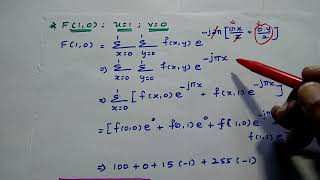 * F(1,0) : u=1 ; v=0
F(1,0) = 1Σx=0 1Σy=0 f(x,y) e^-j2π[ux/2 + 0.y/2]
⇒ 1Σx=0 1Σy=0 f(x,y) e^-jπx
⇒ 1Σx=0 [ f(x,0) e^-jπx + f(x,1) e^-jπx ]
= [ f(0,0) e⁰ + f(0,1) e⁰ + f(1,0) e^-jπ + f(1,1)
⇒ 100 + 0 + 15 (-1) + 255 (-1)